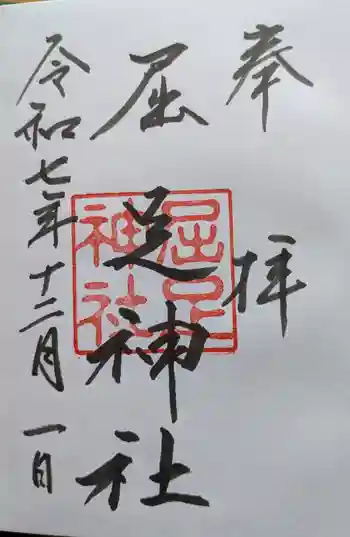 奉拝
屈足神社
屈足神社
令和七年十二月一日